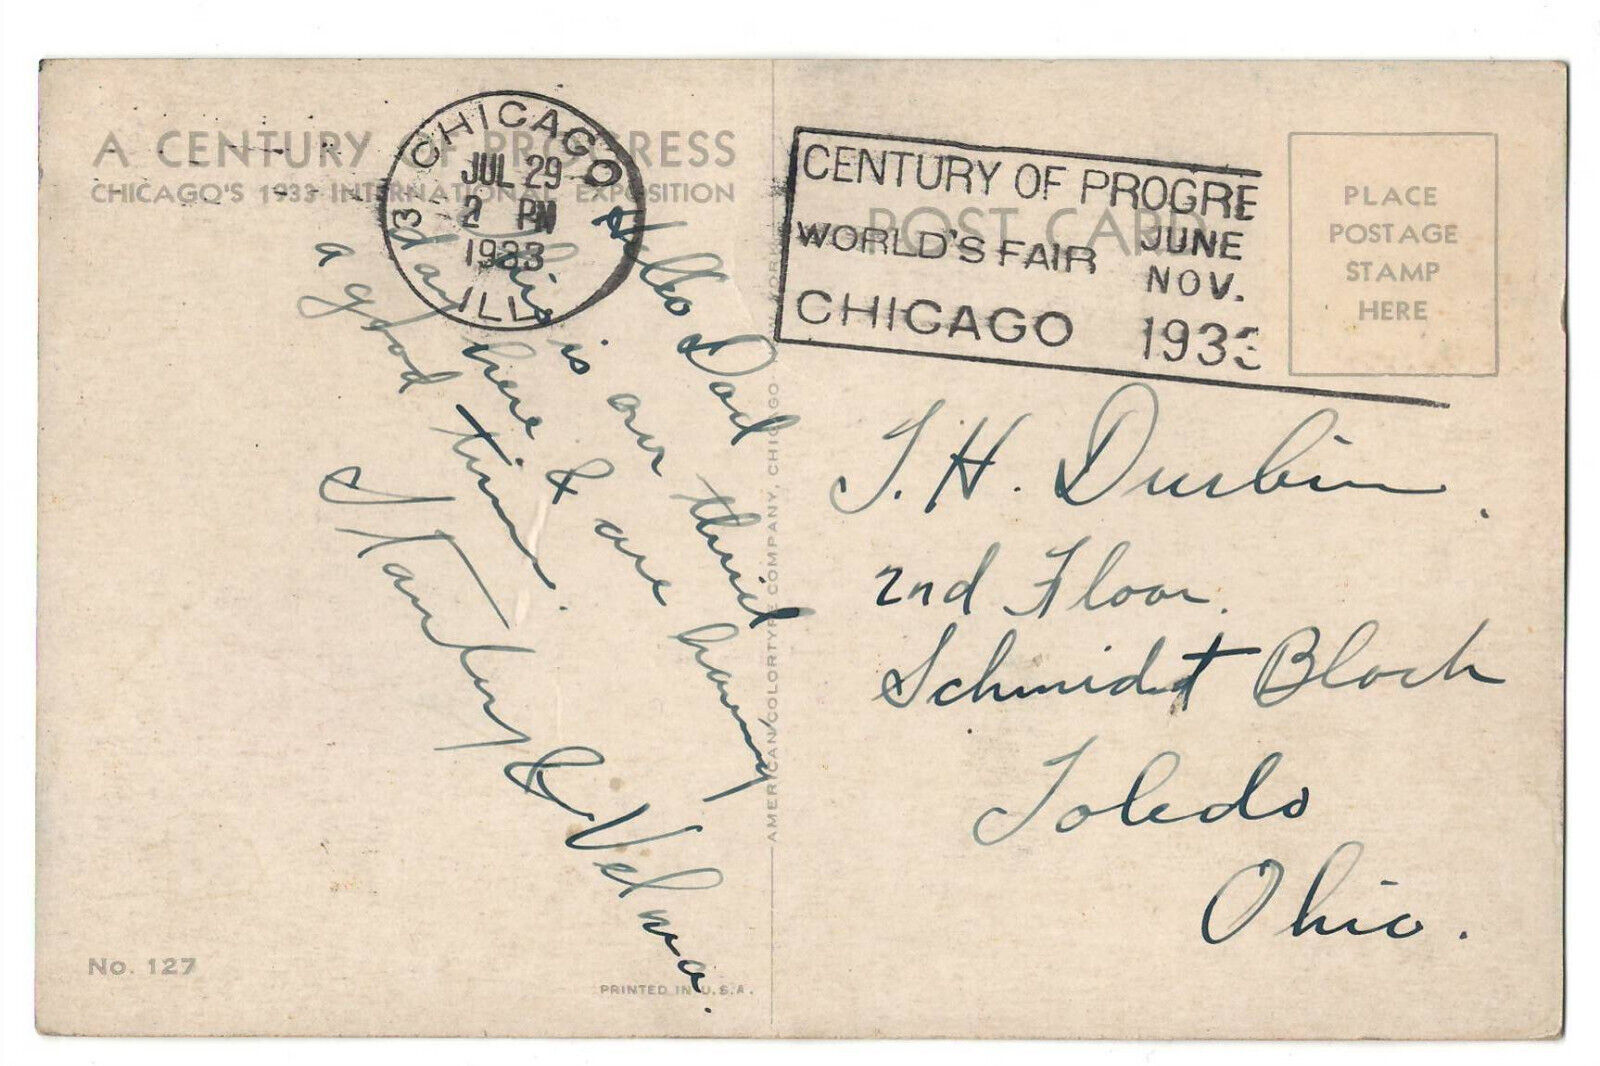 A CENTURY OF PROGRESS
CHICAGO'S 1933 INTERNATIONAL EXPOSITION
CHICAGO
JUL 29
2 PM
1933
ILL.
3
CENTURY OF PROGRE
WORLD'S FAIR
JUNE
NOV.
CHICAGO 1933
POST CARD
PLACE
POSTAGE
STAMP
HERE
Hello Dad
This is our third
day here & are having
a good time.
Stanley & Velma.
AMERICAN COLORTYPE COMPANY, CHICAGO
T. H. Durbin.
2nd Floor.
Schmidt Block
Toledo
Ohio.
No. 127
PRINTED IN U.S.A.